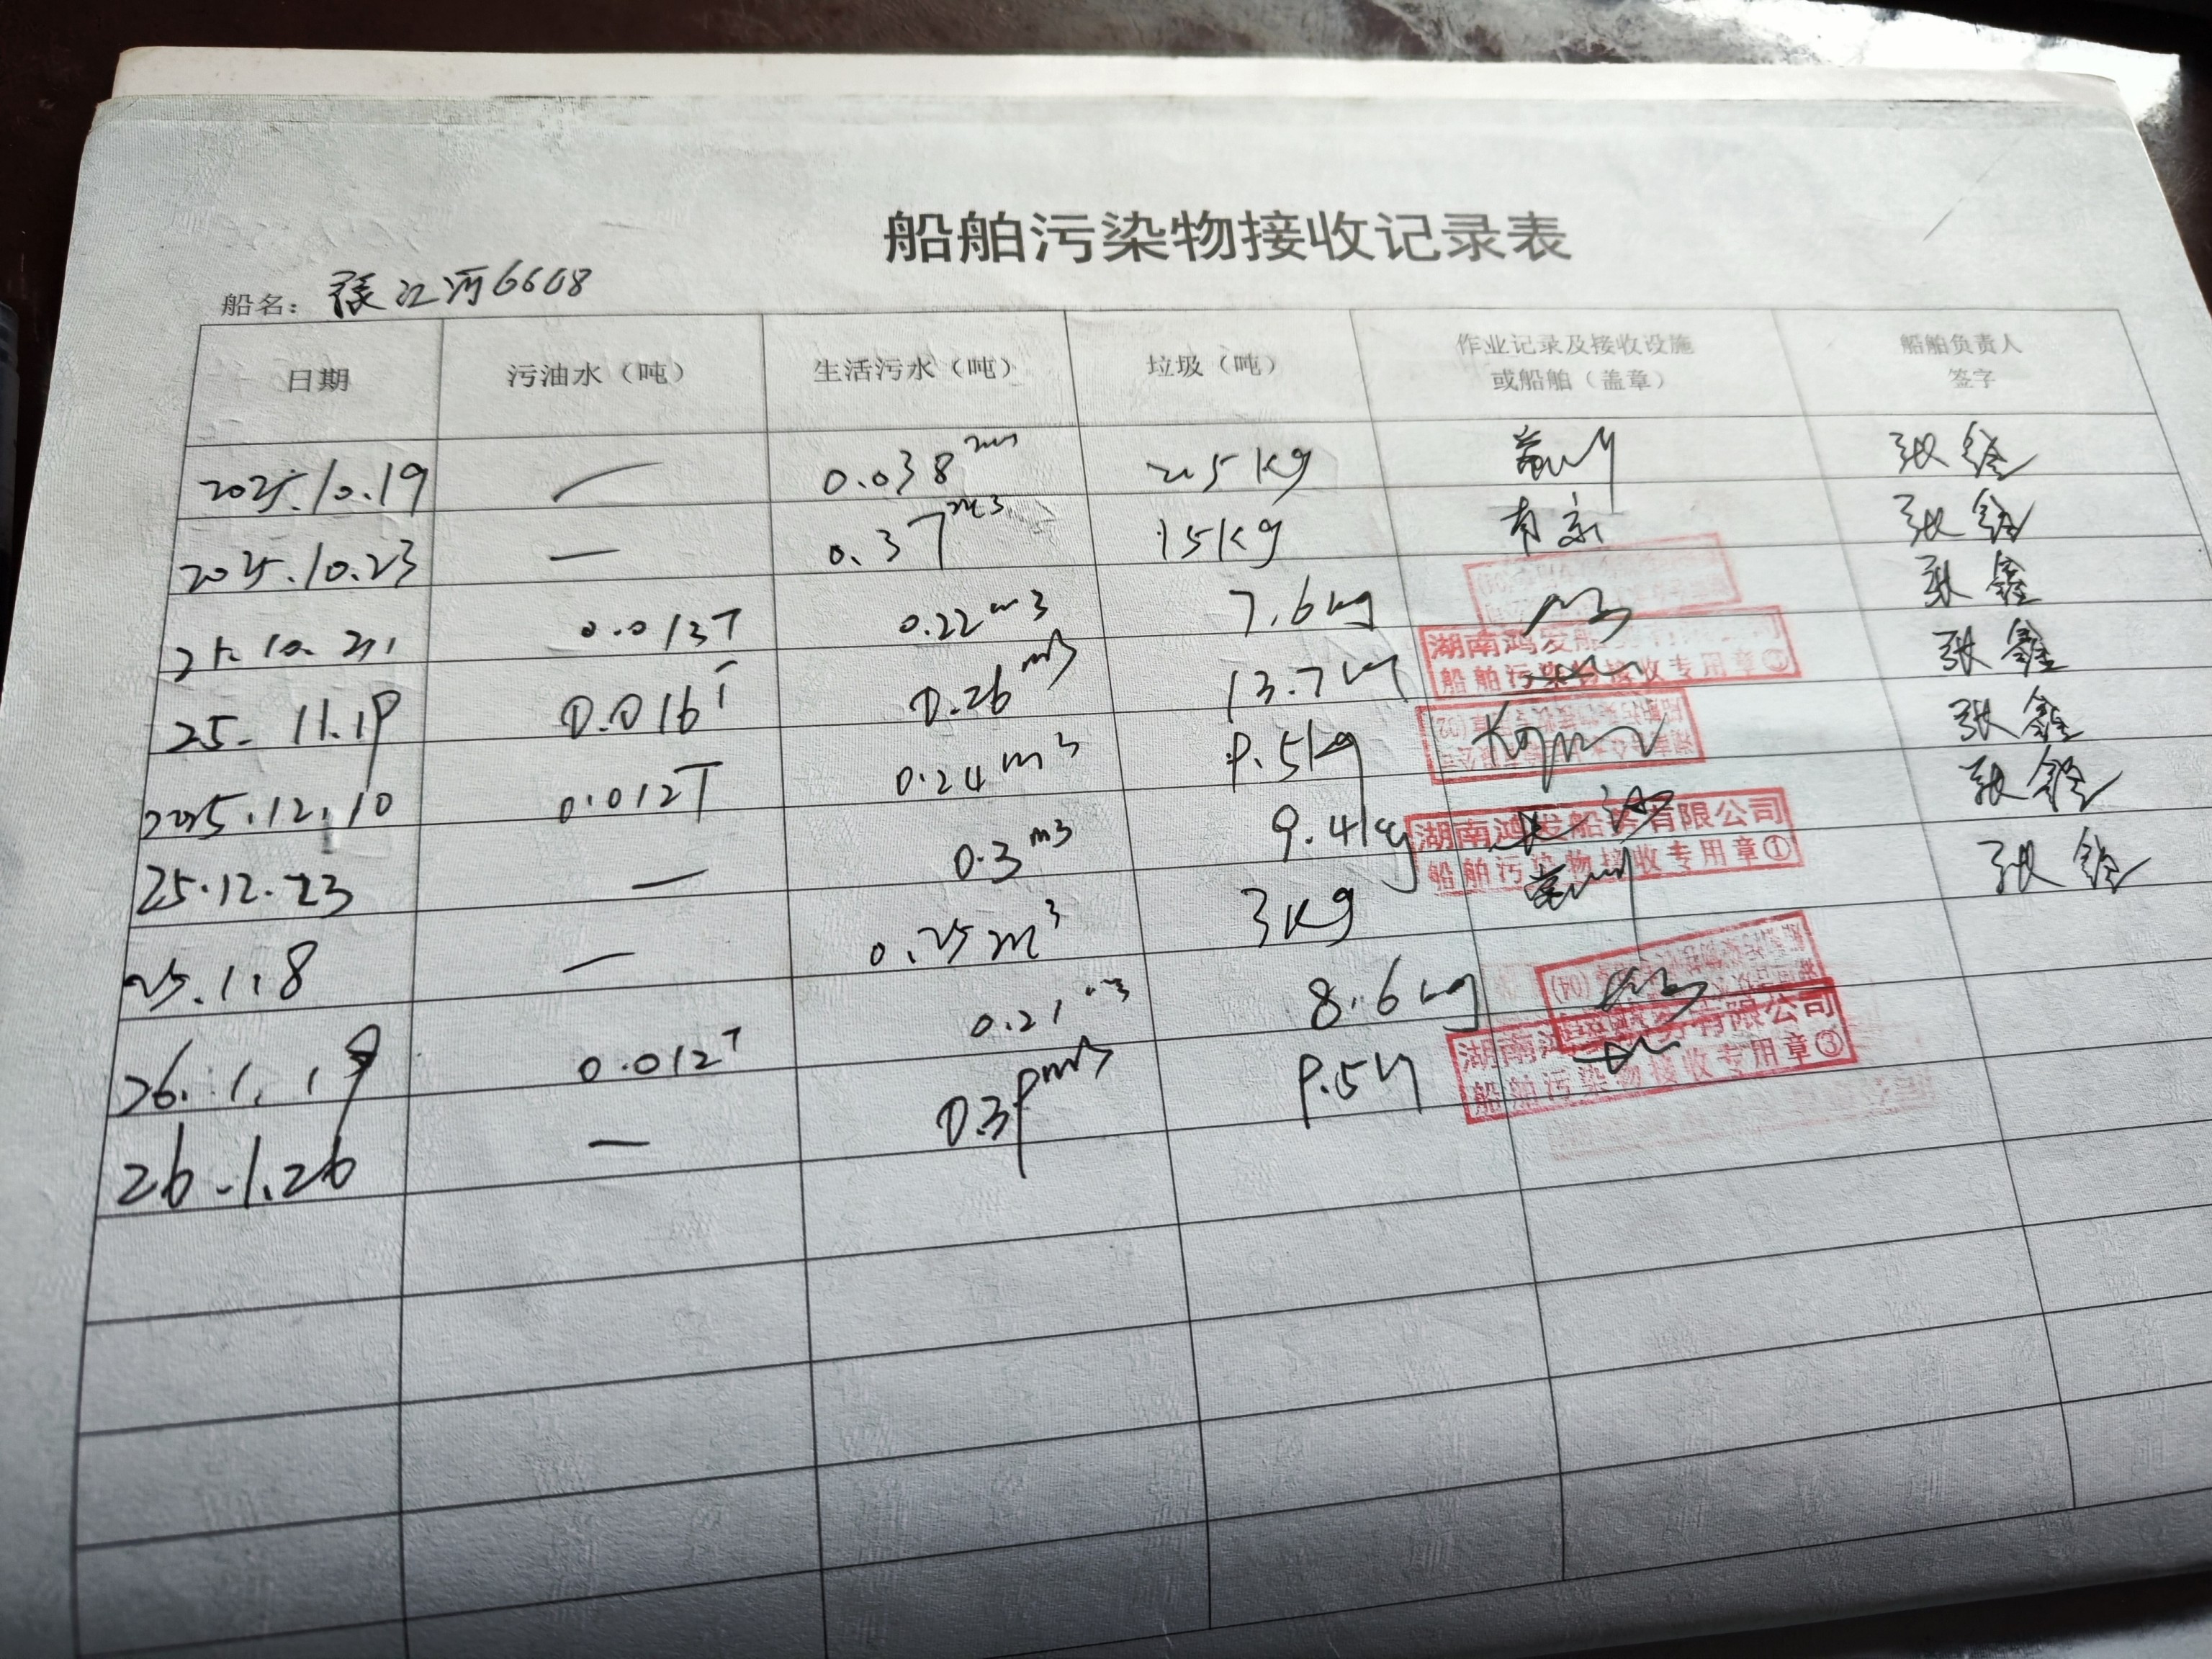 船舶污染物接收记录表
船名： 张江河6608
日期 污油水（吨） 生活污水（吨） 垃圾（吨） 作业记录及接收设施或船舶（盖章） 船舶负责人签字
2025.10.19 — 0.038 2.5kg 张鑫
2025.10.23 — 0.37m3 15kg 张鑫
25.10. 0.013T 0.22m3 7.6kg 张鑫
25.11.19 0.016T 0.26m3 13.7kg 湖南鸿发船 船舶污染物接收专用章 张鑫
2025.12.10 0.012T 0.24m3 9.5kg 张鑫
25.12.23 — 0.3m3 9.4kg 湖南鸿发船务有限公司 船舶污染物接收专用章① 张鑫
25.1.8 — 0.25m3 3kg 张鑫
26.1.19 0.012T 0.21m3 8.6kg
26.1.26 — 0.39m3 9.5kg 湖南鸿发船务有限公司 船舶污染物接收专用章③